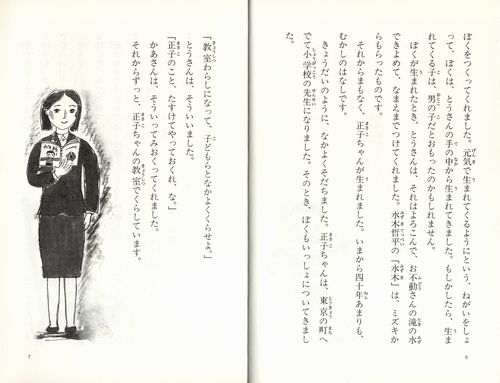 ぼくをつくってくれました。元気で生まれてくるようにという、ねがいをしょ
って、ぼくは、とうさんの手の中から生まれてきました。もしかしたら、生ま
れてくる子は、男の子だとおもったのかもしれません。
ぼくが生まれたとき、とうさんは、それはよろこんで、お不動さんの滝の水
できよめて、なまえまでつけてくれました。水木哲平の「水木」は、ミズキか
らもらったものです。
それからまもなく、正子ちゃんが生まれました。いまから四十年あまりも、
むかしのはなしです。
きょうだいのように、なかよくそだちました。正子ちゃんは、東京の町へ
でて小学校の先生になりました。そのとき、ぼくもいっしょについてきまし
た。
6
「教室わらしになって、子どもらとなかよくくらせよ。」
とうさんは、そういいました。
「正子のこと、たすけてやっておくれ、な。」
かあさんは、そういってみおくってくれました。
それからずっと、正子ちゃんの教室でくらしています。
7